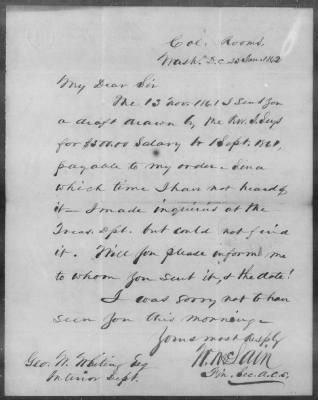 Col. Rooms,
Wash. D.C. 22 Jan. 1862
My Dear Sir
The 13 Nov. 1861 I sent you
a draft drawn by the Rev. J. Seys
for $500.00 Salary to 1 Sept. 1861,
payable to my order. Since
which time I have not heard of
it — I made inquiries at the
Treas. Dpt. but could not find
it. Will you please inform me
to whom you sent it, & the date!
I was sorry not to have
seen you this morning —
Yours most Resply
W. McLain
Fin. Sec. A.C.S.
Geo. W. Whiting Esq
Interior Dept.